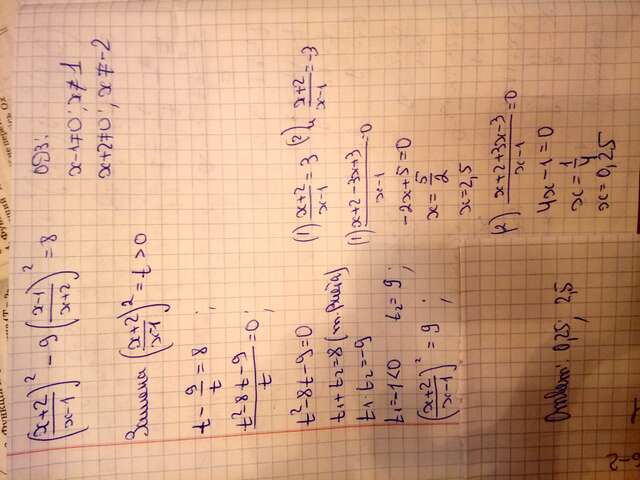 ((x+2)/(x-1))² - 9((x-1)/(x+2))² = 8
ОДЗ:
x-1≠0; x≠1
x+2≠0; x≠-2
Замена ((x+2)/(x-1))² = t > 0
t - 9/t = 8;
(t²-8t-9)/t = 0;
t²-8t-9=0
t₁+t₂=8 (т. Виета)
t₁ t₂=-9
t₁=-1<0 t₂=9;
((x+2)/(x-1))² = 9;
(1) (x+2)/(x-1) = 3 (2) (x+2)/(x-1) = -3
(1) (x+2-3x+3)/(x-1) = 0
-2x+5=0
x=5/2
x=2,5
(2) (x+2+3x-3)/(x-1) = 0
4x-1=0
x=1/4
x=0,25
Ответ: 0,25; 2,5